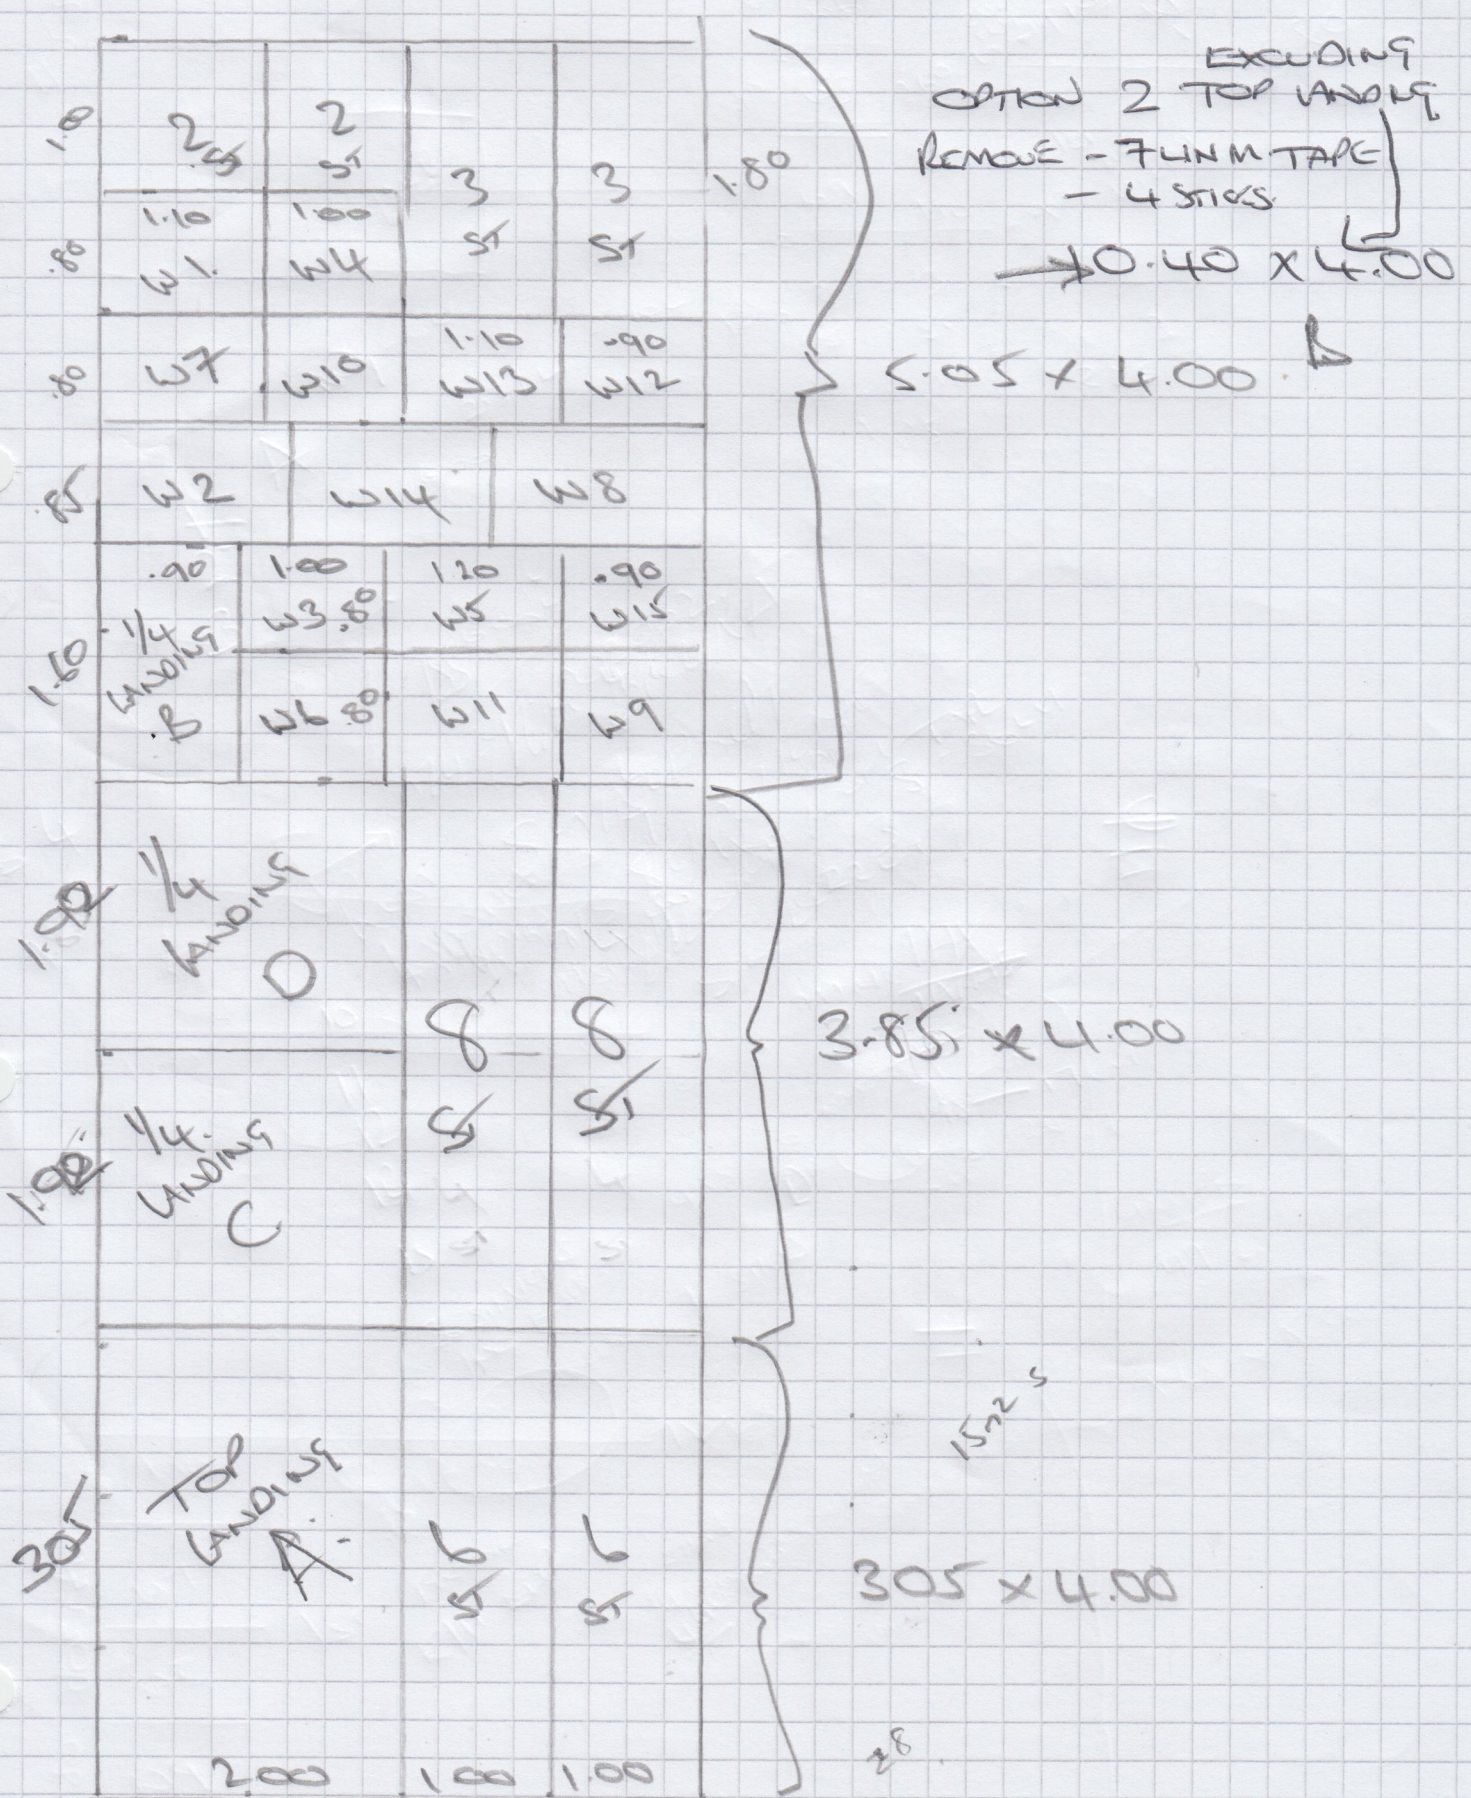 EXCLUDING
OPTION 2 TOP LANDING
REMOVE - 7 LIN M TAPE
- 4 STICKS
10.40 x 4.00
1.0
2
ST
2
ST
3
ST
3
ST
1.80
.80
1.10
W1.
1.00
W4
.80
W7
W10
1.10
W13
.90
W12
5.05 x 4.00 B
.85
W2
W14
W8
1.60
.90
1/4
LANDING
.B
1.00
W3 .80
1.20
W5
.90
W15
W6 .80
W11
W9
1/4
LANDING
D
8
ST
8
ST
3.85 x 4.00
1/4.
LANDING
C
305
TOP
LANDING
A.
6
ST
6
ST
305 x 4.00
2.00
1.00
1.00